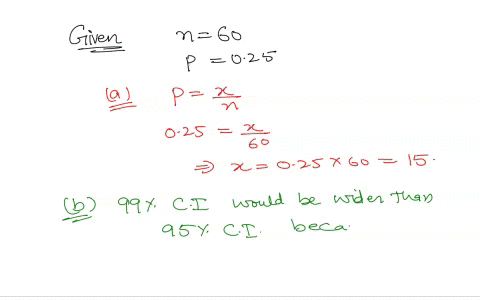 Given n=60
p = 0.25
(a) p = x/n
0.25 = x/60
⇒ x = 0.25 × 60 = 15.
(b) 99% C.I would be wider than
95% C.I. beca